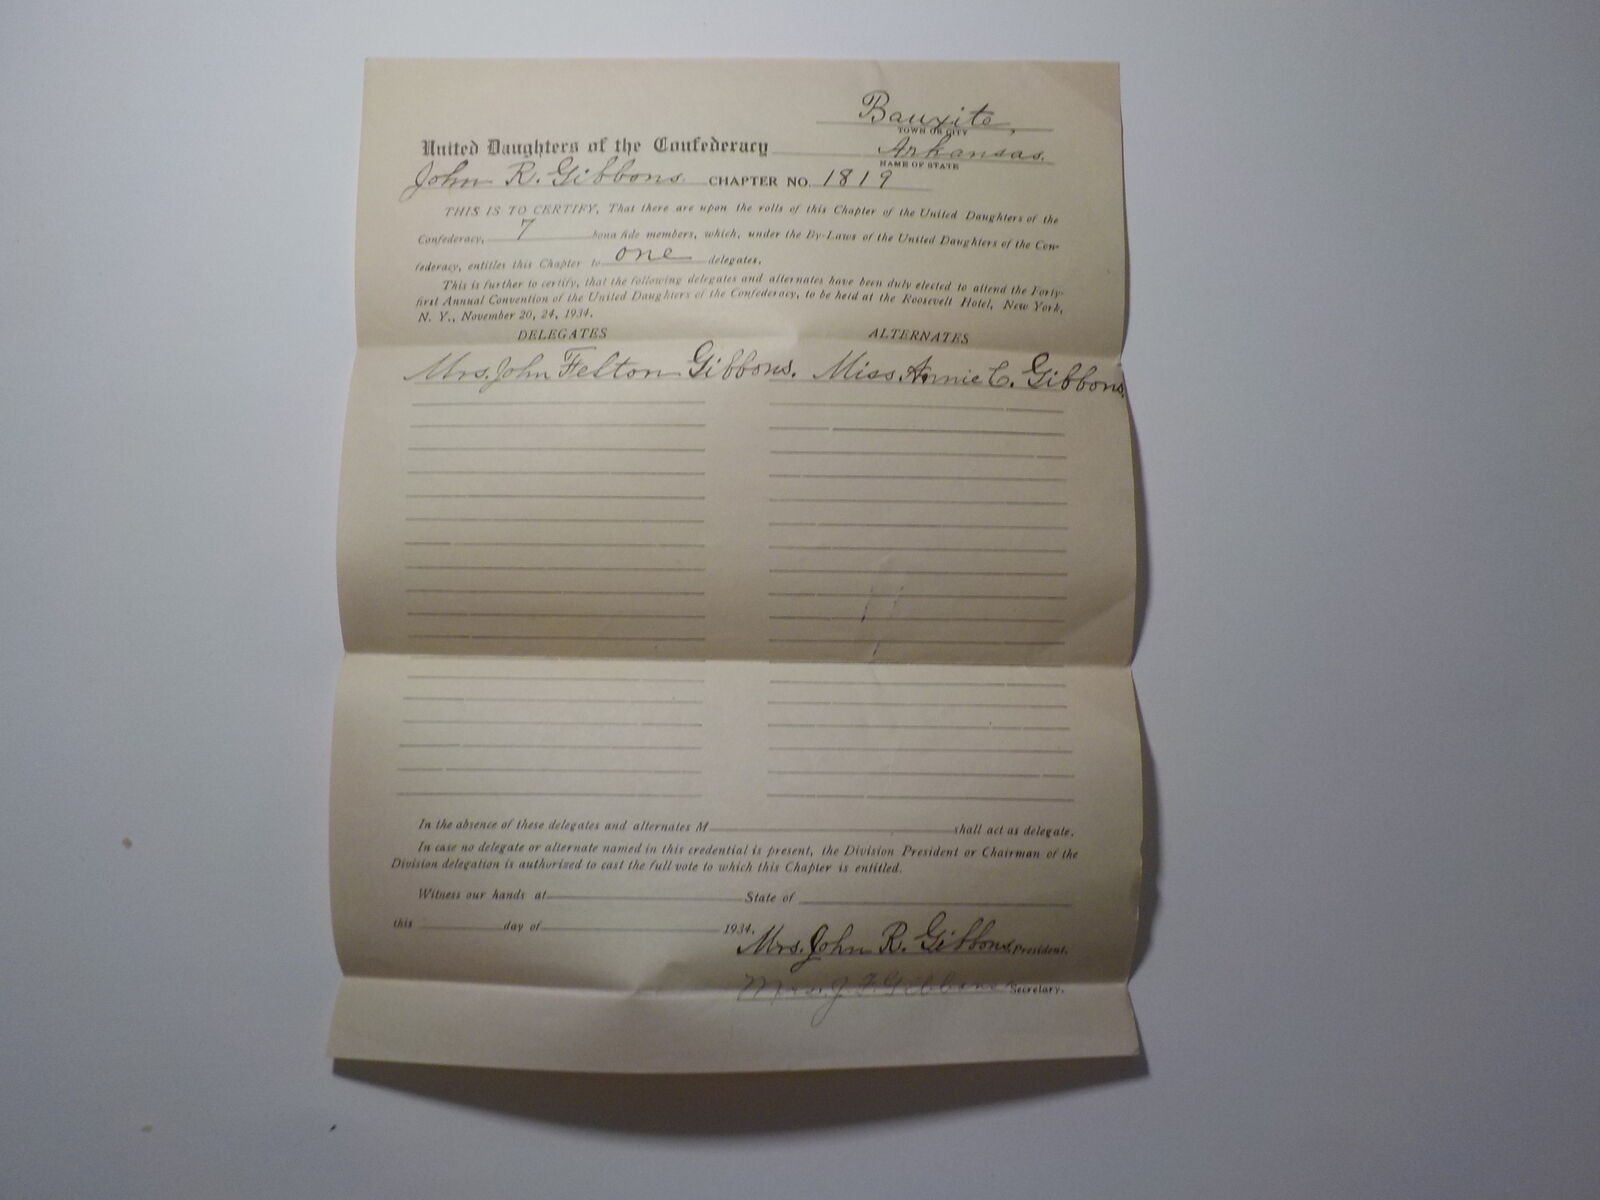 Bauxite,
TOWN OR CITY
United Daughters of the Confederacy Arkansas.
NAME OF STATE
John R. Gibbons. CHAPTER NO. 1819
THIS IS TO CERTIFY, That there are upon the rolls of this Chapter of the United Daughters of the
Confederacy, 7 bona fide members, which, under the By-Laws of the United Daughters of the Con-
federacy, entitles this Chapter to one delegates.
This is further to certify, that the following delegates and alternates have been duly elected to attend the Forty-
first Annual Convention of the United Daughters of the Confederacy, to be held at the Roosevelt Hotel, New York,
N. Y., November 20, 24, 1934.
DELEGATES ALTERNATES
Mrs. John Felton Gibbons. Miss Annie C. Gibbons.
In the absence of these delegates and alternates M shall act as delegate.
In case no delegate or alternate named in this credential is present, the Division President or Chairman of the
Division delegation is authorized to cast the full vote to which this Chapter is entitled.
Witness our hands at State of
this day of 1934.
Mrs. John R. Gibbons President.
Mrs. J. F. Gibbons Secretary.